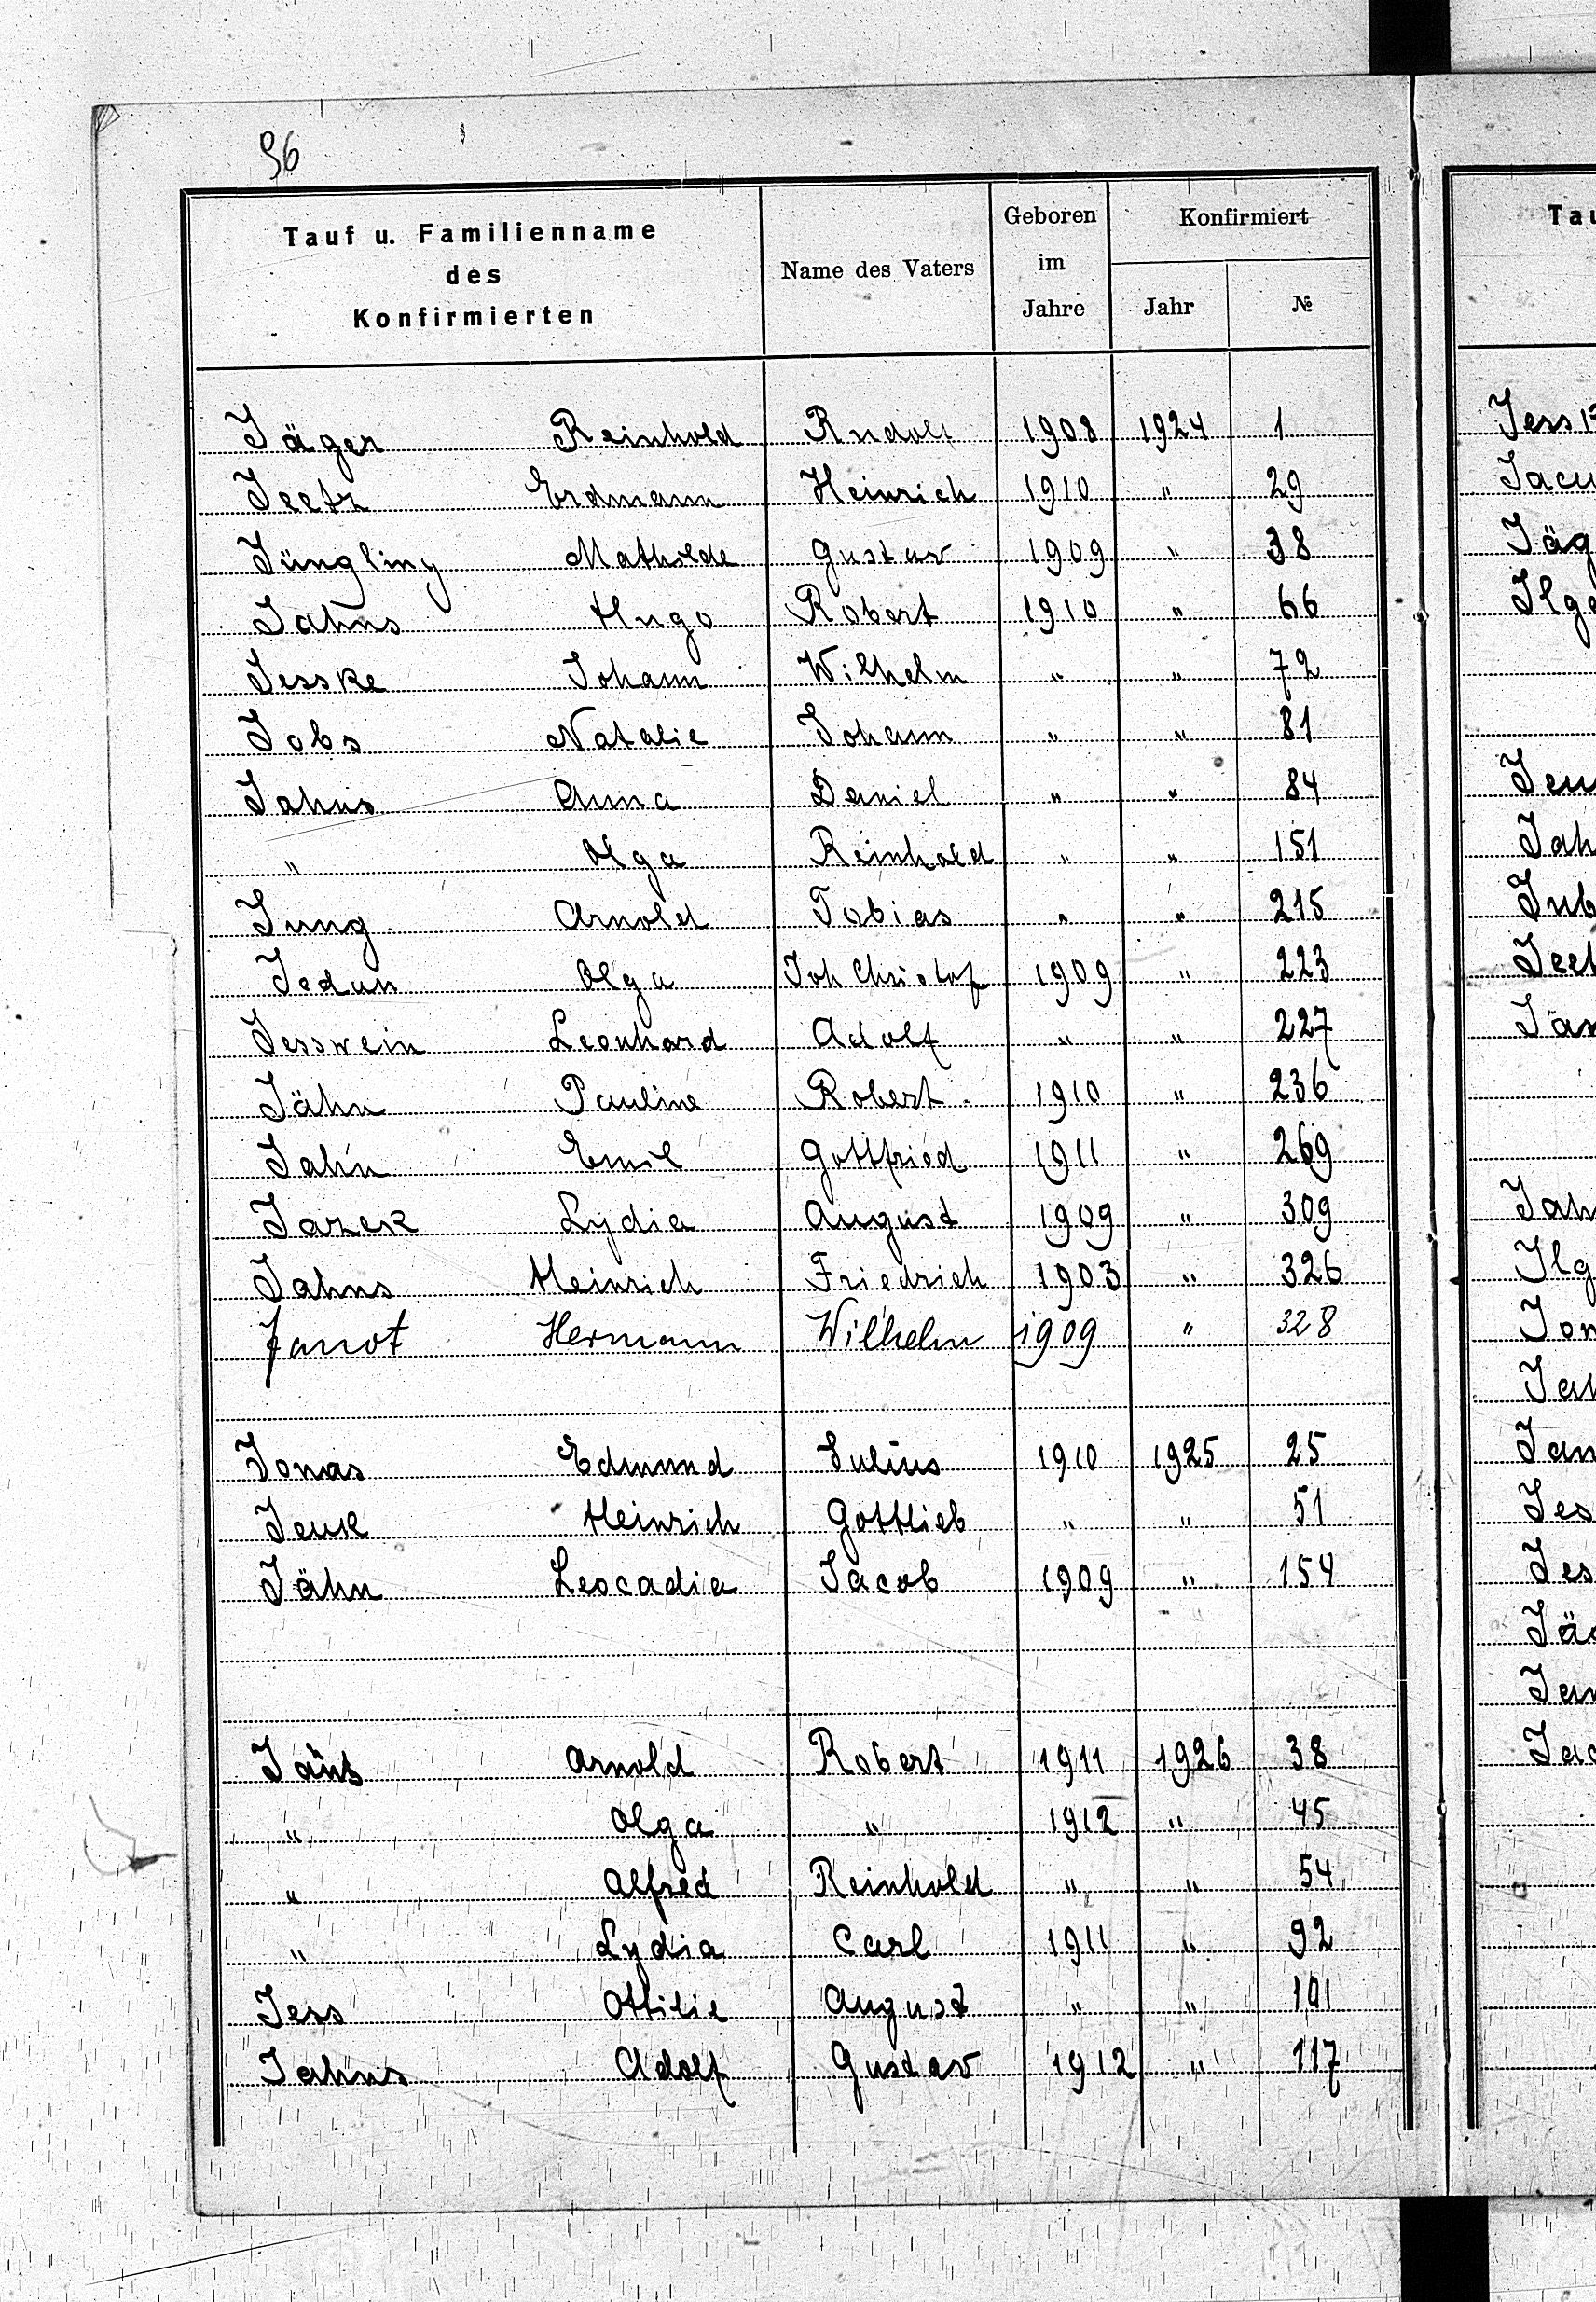 96
Tauf u. Familienname des Konfirmierten | Name des Vaters | Geboren im Jahre | Konfirmiert Jahr | №
Jäger Reinhold Rudolf 1908 1924 1
Jeetz Erdmann Heinrich 1910 " 29
Jüngling Mathilde Gustav 1909 " 38
Jahns Hugo Robert 1910 " 66
Jesske Johann Wilhelm " " 72
Jobs Natalie Johann " " 81
Jahns Anna Daniel " " 84
" Olga Reinhold " " 151
Jung Arnold Tobias " " 215
Jedan Olga Joh Christof 1909 " 223
Jesswein Leonhard Adolf " " 227
Jähn Pauline Robert 1910 " 236
Jahn Emil Gottfried 1911 " 269
Jazek Lydia August 1909 " 309
Jahns Heinrich Friedrich 1903 " 326
Janot Hermann Wilhelm 1909 " 328
Jonas Edmund Julius 1910 1925 25
Jenk Heinrich Gottlieb " " 51
Jähn Leocadia Jacob 1909 " 154
Arnold Robert 1911 1926 38
" Olga " 1912 " 45
" Alfred Reinhold " " 54
" Lydia Carl 1911 " 92
Jess Ottilie August " " 101
Jahns Adolf Gustav 1912 " 117
Tau
Jess
Jacu
Jäg
Ilg
Jah
Jub
Jah
Ilg
Jon
Jes
Jes